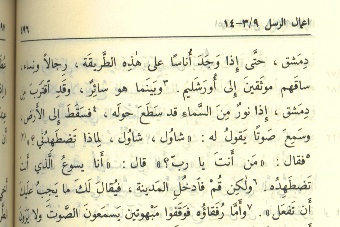 اعمال الرسل ٩/٣-١٤
١٩٦
دِمشق، حَتَّى إذا وَجَدَ أُناسًا على هٰذِهِ الطَّريقَة، رجالاً ونِساء،
ساقَهم موثَقينَ إلى أُورَشَليم. ٣وبَينَما هو سائِرٌ، وقَدِ اقتَرَبَ مِن
دِمشق، إذا نورٌ مِنَ السَّماءِ قد سَطَعَ حَولَه، ٤فسَقَطَ إلى الأَرض،
وسَمِعَ صَوتًا يَقولُ له: «شاول، شاول، لِماذا تَضطَهِدُني؟»
٥فقال: «مَن أَنتَ يا ربّ؟» قال: «أَنا يسوعُ الَّذي أَنتَ
تَضطَهِدُه. ٦ولٰكِن قُمْ فادخُلِ المَدينة، فيُقالَ لَكَ ما يَجِبُ علَيكَ
أَن تَفعَل». ٧وأَمَّا رُفَقاؤُه فوَقَفوا مَبهوتينَ يَسمَعونَ الصَّوتَ ولا يَرَونَ